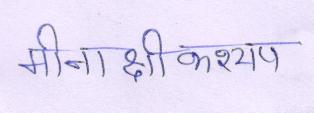 मीनाक्षी कश्यप